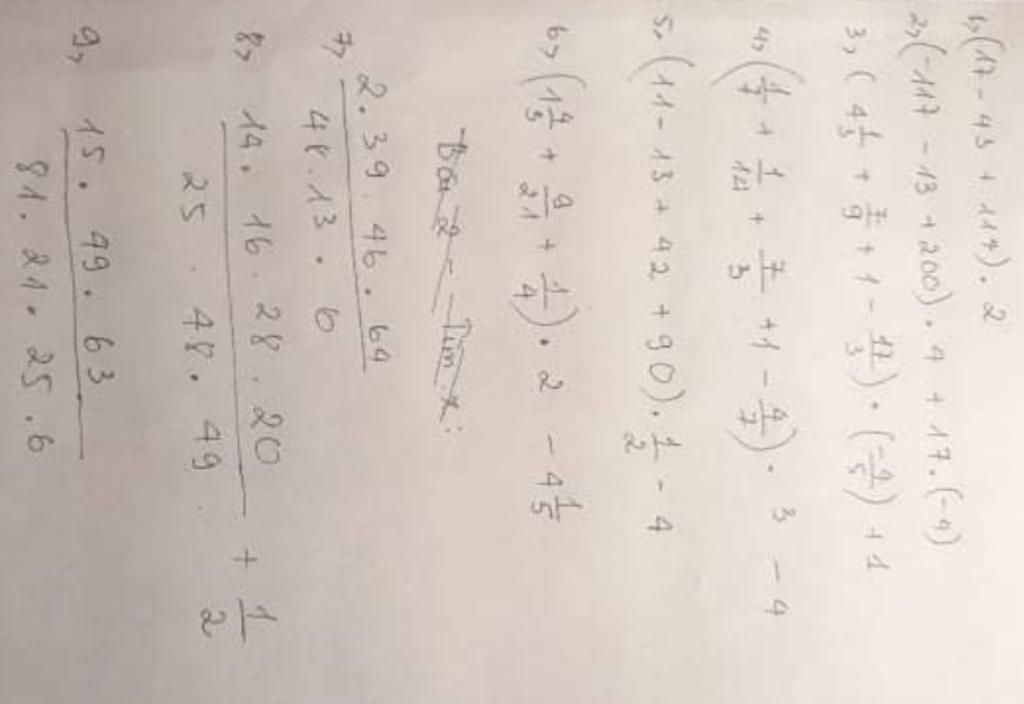 1, (17 - 43 + 117). 2
2, (-117 - 13 + 200). 4 + 17. (-4)
3, (4 1/3 + 7/9 + 1 - 17/3). (-9/5) + 1
4, (1/7 + 1/14 + 7/3 + 1 - 4/7). 3 - 4
5, (11 - 13 + 42 + 90). 1/2 - 4
6, (1 4/3 + 9/21 + 1/4). 2 - 4 1/5
Bài 2 - Tìm x:
7, 2. 39. 46. 64
48. 13. 6
8, 14. 16. 28. 20 + 1/2
25. 48. 49
9, 15. 49. 63
81. 21. 25. 6